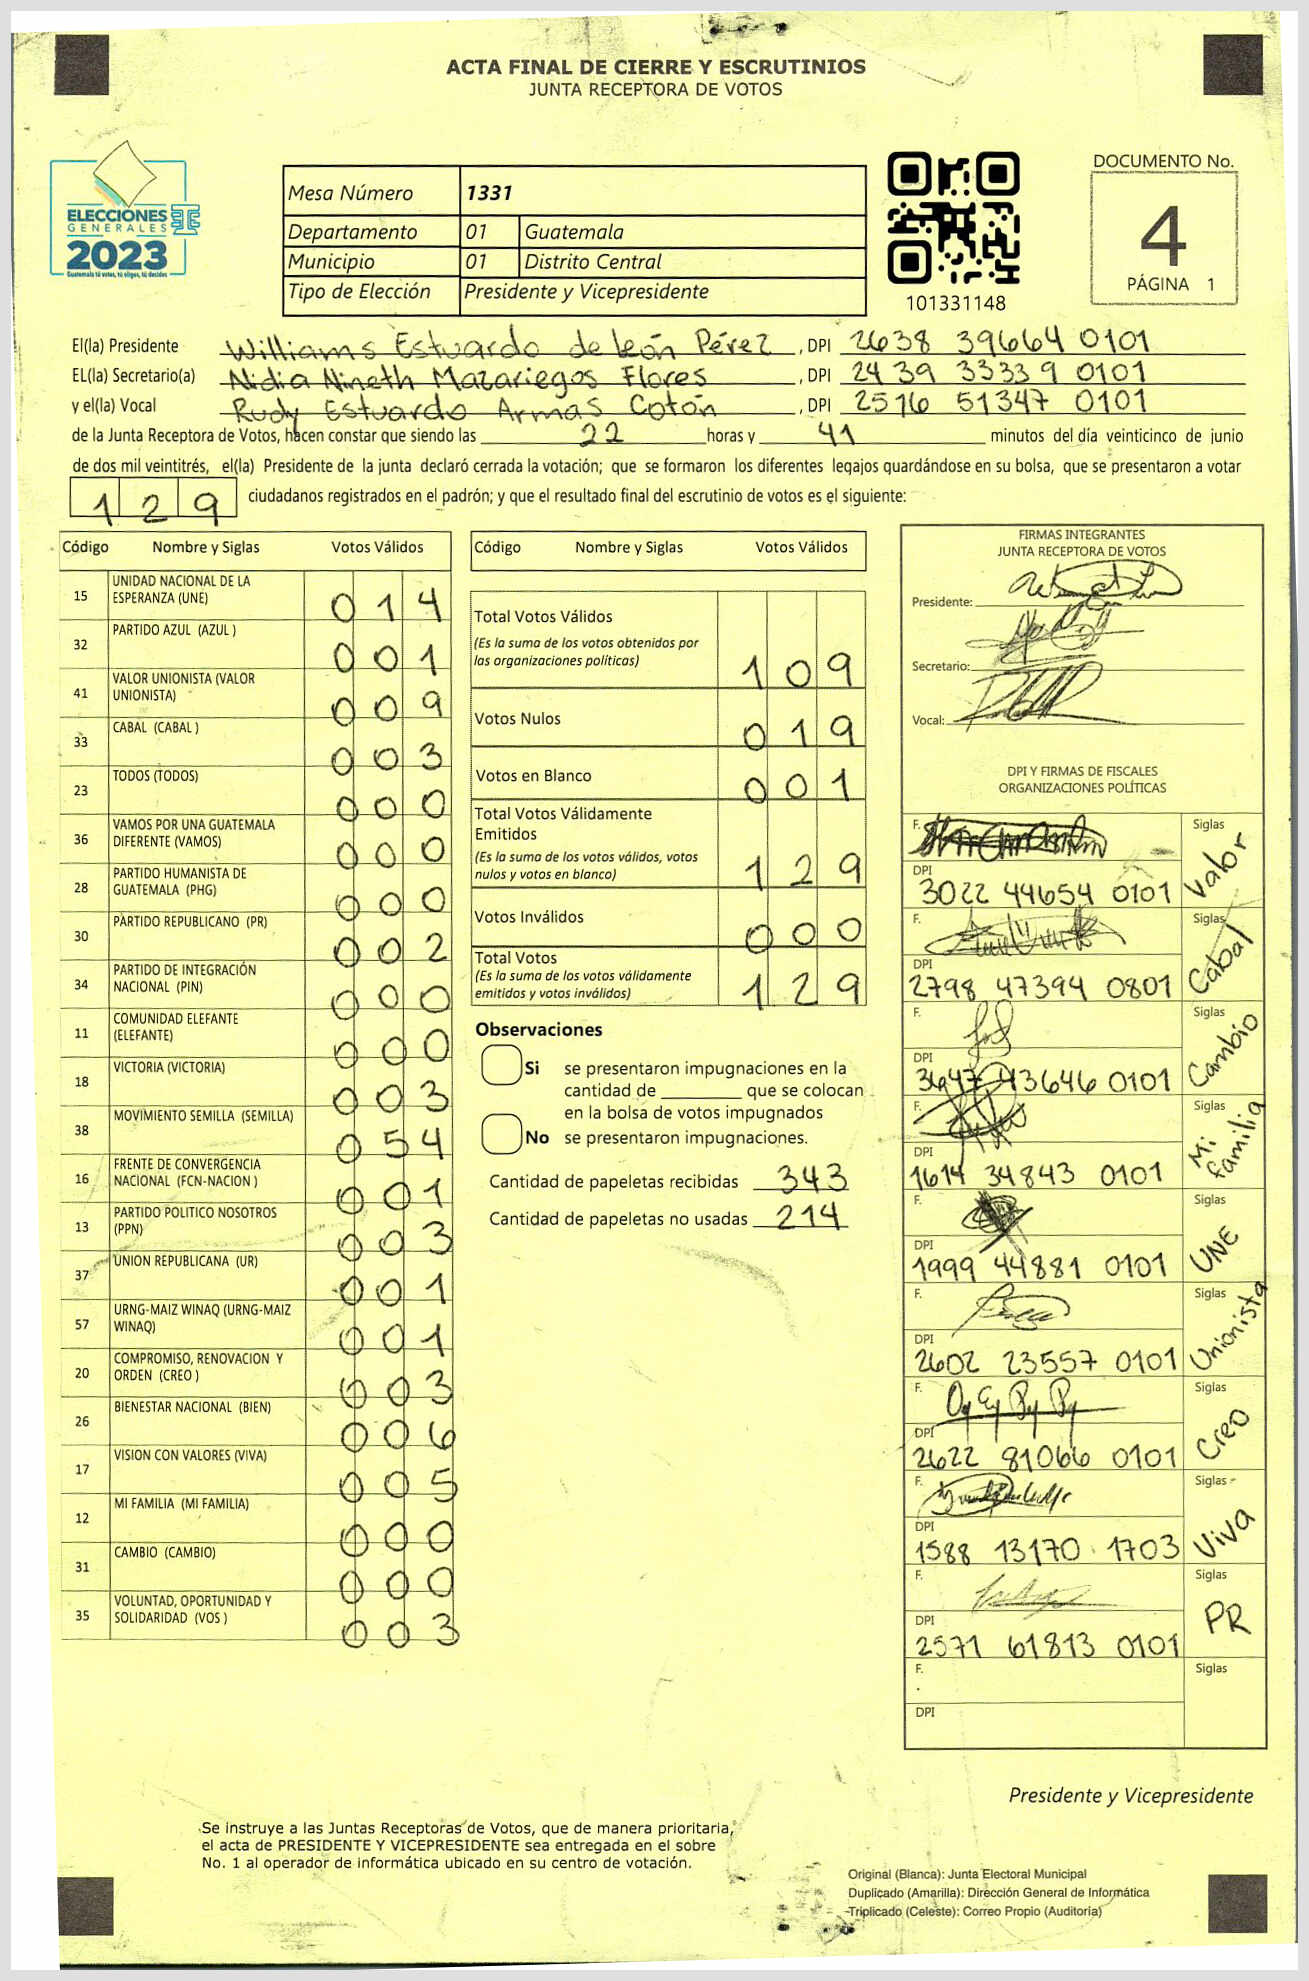 ACTA FINAL DE CIERRE Y ESCRUTINIOS
JUNTA RECEPTORA DE VOTOS
ELECCIONES
GENERALES
2023
Guatemala tú votas, tú eliges, tú decides
Mesa Número 1331
Departamento 01 Guatemala
Municipio 01 Distrito Central
Tipo de Elección Presidente y Vicepresidente
101331148
DOCUMENTO No.
4
PÁGINA 1
El(la) Presidente Williams Estuardo de León Pérez , DPI 2638 39664 0101
EL(la) Secretario(a) Nidia Nineth Mazariegos Flores , DPI 2439 33339 0101
y el(la) Vocal Rudy Estuardo Armas Cotón , DPI 2516 51347 0101
de la Junta Receptora de Votos, hacen constar que siendo las 22 horas y 41 minutos del día veinticinco de junio
de dos mil veintitrés, el(la) Presidente de la junta declaró cerrada la votación; que se formaron los diferentes legajos quardándose en su bolsa, que se presentaron a votar
129 ciudadanos registrados en el padrón; y que el resultado final del escrutinio de votos es el siguiente:
Código Nombre y Siglas Votos Válidos
15 UNIDAD NACIONAL DE LA ESPERANZA (UNE) 014
32 PARTIDO AZUL (AZUL ) 001
41 VALOR UNIONISTA (VALOR UNIONISTA) 009
33 CABAL (CABAL ) 003
23 TODOS (TODOS) 000
36 VAMOS POR UNA GUATEMALA DIFERENTE (VAMOS) 000
28 PARTIDO HUMANISTA DE GUATEMALA (PHG) 000
30 PARTIDO REPUBLICANO (PR) 002
34 PARTIDO DE INTEGRACIÓN NACIONAL (PIN) 000
11 COMUNIDAD ELEFANTE (ELEFANTE) 000
18 VICTORIA (VICTORIA) 003
38 MOVIMIENTO SEMILLA (SEMILLA) 054
16 FRENTE DE CONVERGENCIA NACIONAL (FCN-NACION ) 001
13 PARTIDO POLITICO NOSOTROS (PPN) 003
37 UNION REPUBLICANA (UR) 001
57 URNG-MAIZ WINAQ (URNG-MAIZ WINAQ) 001
20 COMPROMISO, RENOVACION Y ORDEN (CREO ) 003
26 BIENESTAR NACIONAL (BIEN) 006
17 VISION CON VALORES (VIVA) 005
12 MI FAMILIA (MI FAMILIA) 000
31 CAMBIO (CAMBIO) 000
35 VOLUNTAD, OPORTUNIDAD Y SOLIDARIDAD (VOS ) 003
Código Nombre y Siglas Votos Válidos
Total Votos Válidos
(Es la suma de los votos obtenidos por
las organizaciones políticas) 109
Votos Nulos 019
Votos en Blanco 001
Total Votos Válidamente
Emitidos
(Es la suma de los votos válidos, votos
nulos y votos en blanco) 129
Votos Inválidos 000
Total Votos
(Es la suma de los votos válidamente
emitidos y votos inválidos) 129
Observaciones
Si se presentaron impugnaciones en la
cantidad de ________ que se colocan
en la bolsa de votos impugnados
No se presentaron impugnaciones.
Cantidad de papeletas recibidas 343
Cantidad de papeletas no usadas 214
FIRMAS INTEGRANTES
JUNTA RECEPTORA DE VOTOS
Presidente:
Secretario:
Vocal:
DPI Y FIRMAS DE FISCALES
ORGANIZACIONES POLÍTICAS
F. Siglas Valor
DPI 3022 44654 0101
F. Siglas Cabal
DPI 2798 47394 0801
F. Siglas Cambio
DPI 3647 43646 0101
F. Siglas Mi familia
DPI 1614 34843 0101
F. Siglas UNE
DPI 1999 44881 0101
F. Siglas Unionista
DPI 2602 23557 0101
F. Siglas Creo
DPI 2622 81066 0101
F. Siglas Viva
DPI 1588 13170 1703
F. Siglas PR
DPI 2571 61813 0101
F. Siglas
DPI
Presidente y Vicepresidente
Se instruye a las Juntas Receptoras de Votos, que de manera prioritaria,
el acta de PRESIDENTE Y VICEPRESIDENTE sea entregada en el sobre
No. 1 al operador de informática ubicado en su centro de votación.
Original (Blanca): Junta Electoral Municipal
Duplicado (Amarilla): Dirección General de Informática
Triplicado (Celeste): Correo Propio (Auditoria)